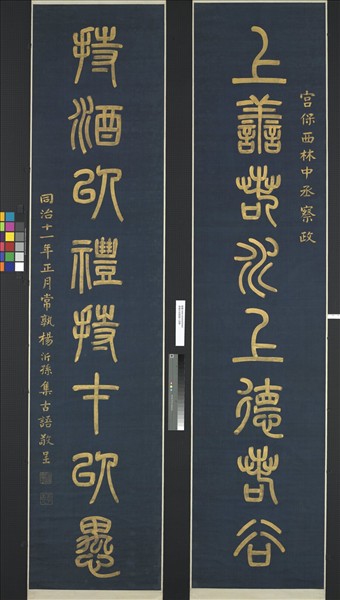 宮保西林中丞察政
上譱若水上德若谷
持酒以禮持才以愚
同治十一年正月常孰楊沂孫集古語敬呈